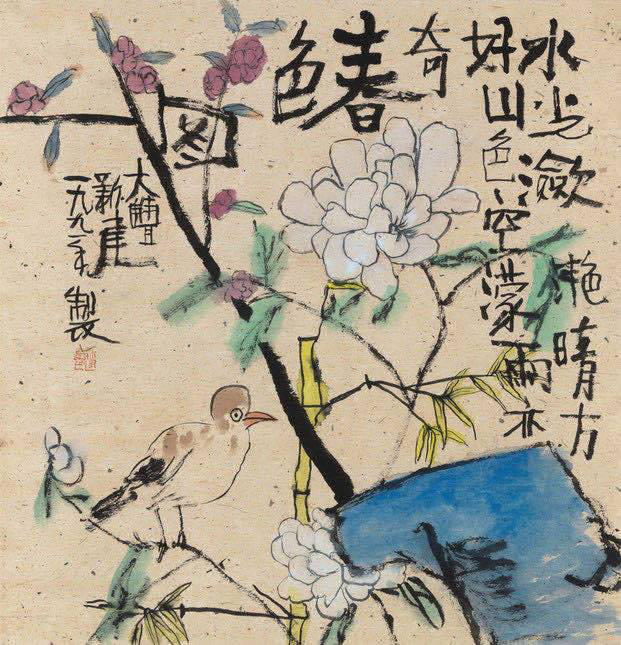 水光潋艳晴方
好山色空濛雨亦
奇
春色
图
大豐
新建
一九九年製